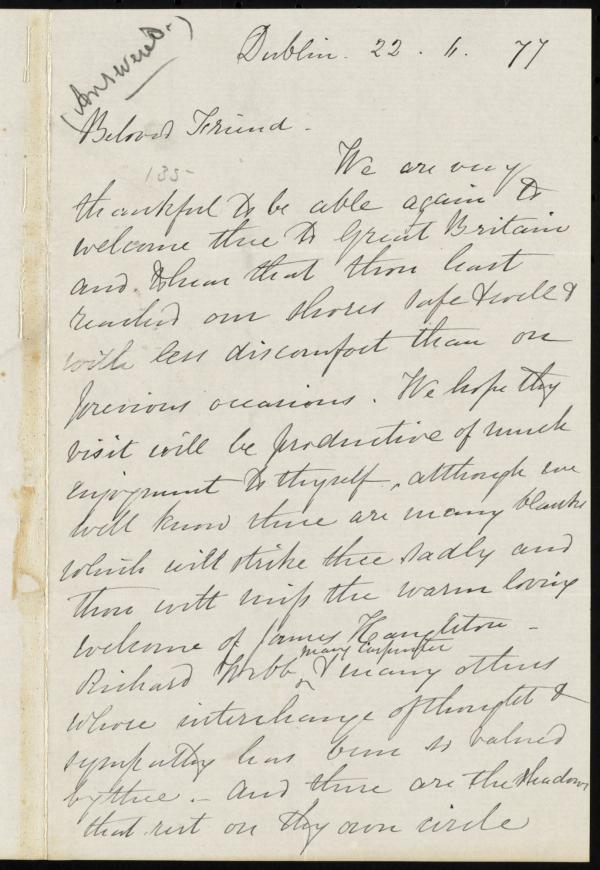 (Answered.)
Dublin. 22. 6. 77
Beloved Friend -
135-
We are very
thankful to be able again to
welcome thee to Great Britain
and to hear that thou hast
reached our shores safe & well &
with less discomfort than on
previous occasions. We hope thy
visit will be productive of much
enjoyment to thyself, although we
well know there are many blanks
which will strike thee sadly and
thou wilt miss the warm loving
welcome of James Haughton -
Richard Webb, Mary Carpenter & many others
whose interchange of thought &
sympathy has been so valued
by thee. - And there are the shadows
that rest on thy own circle